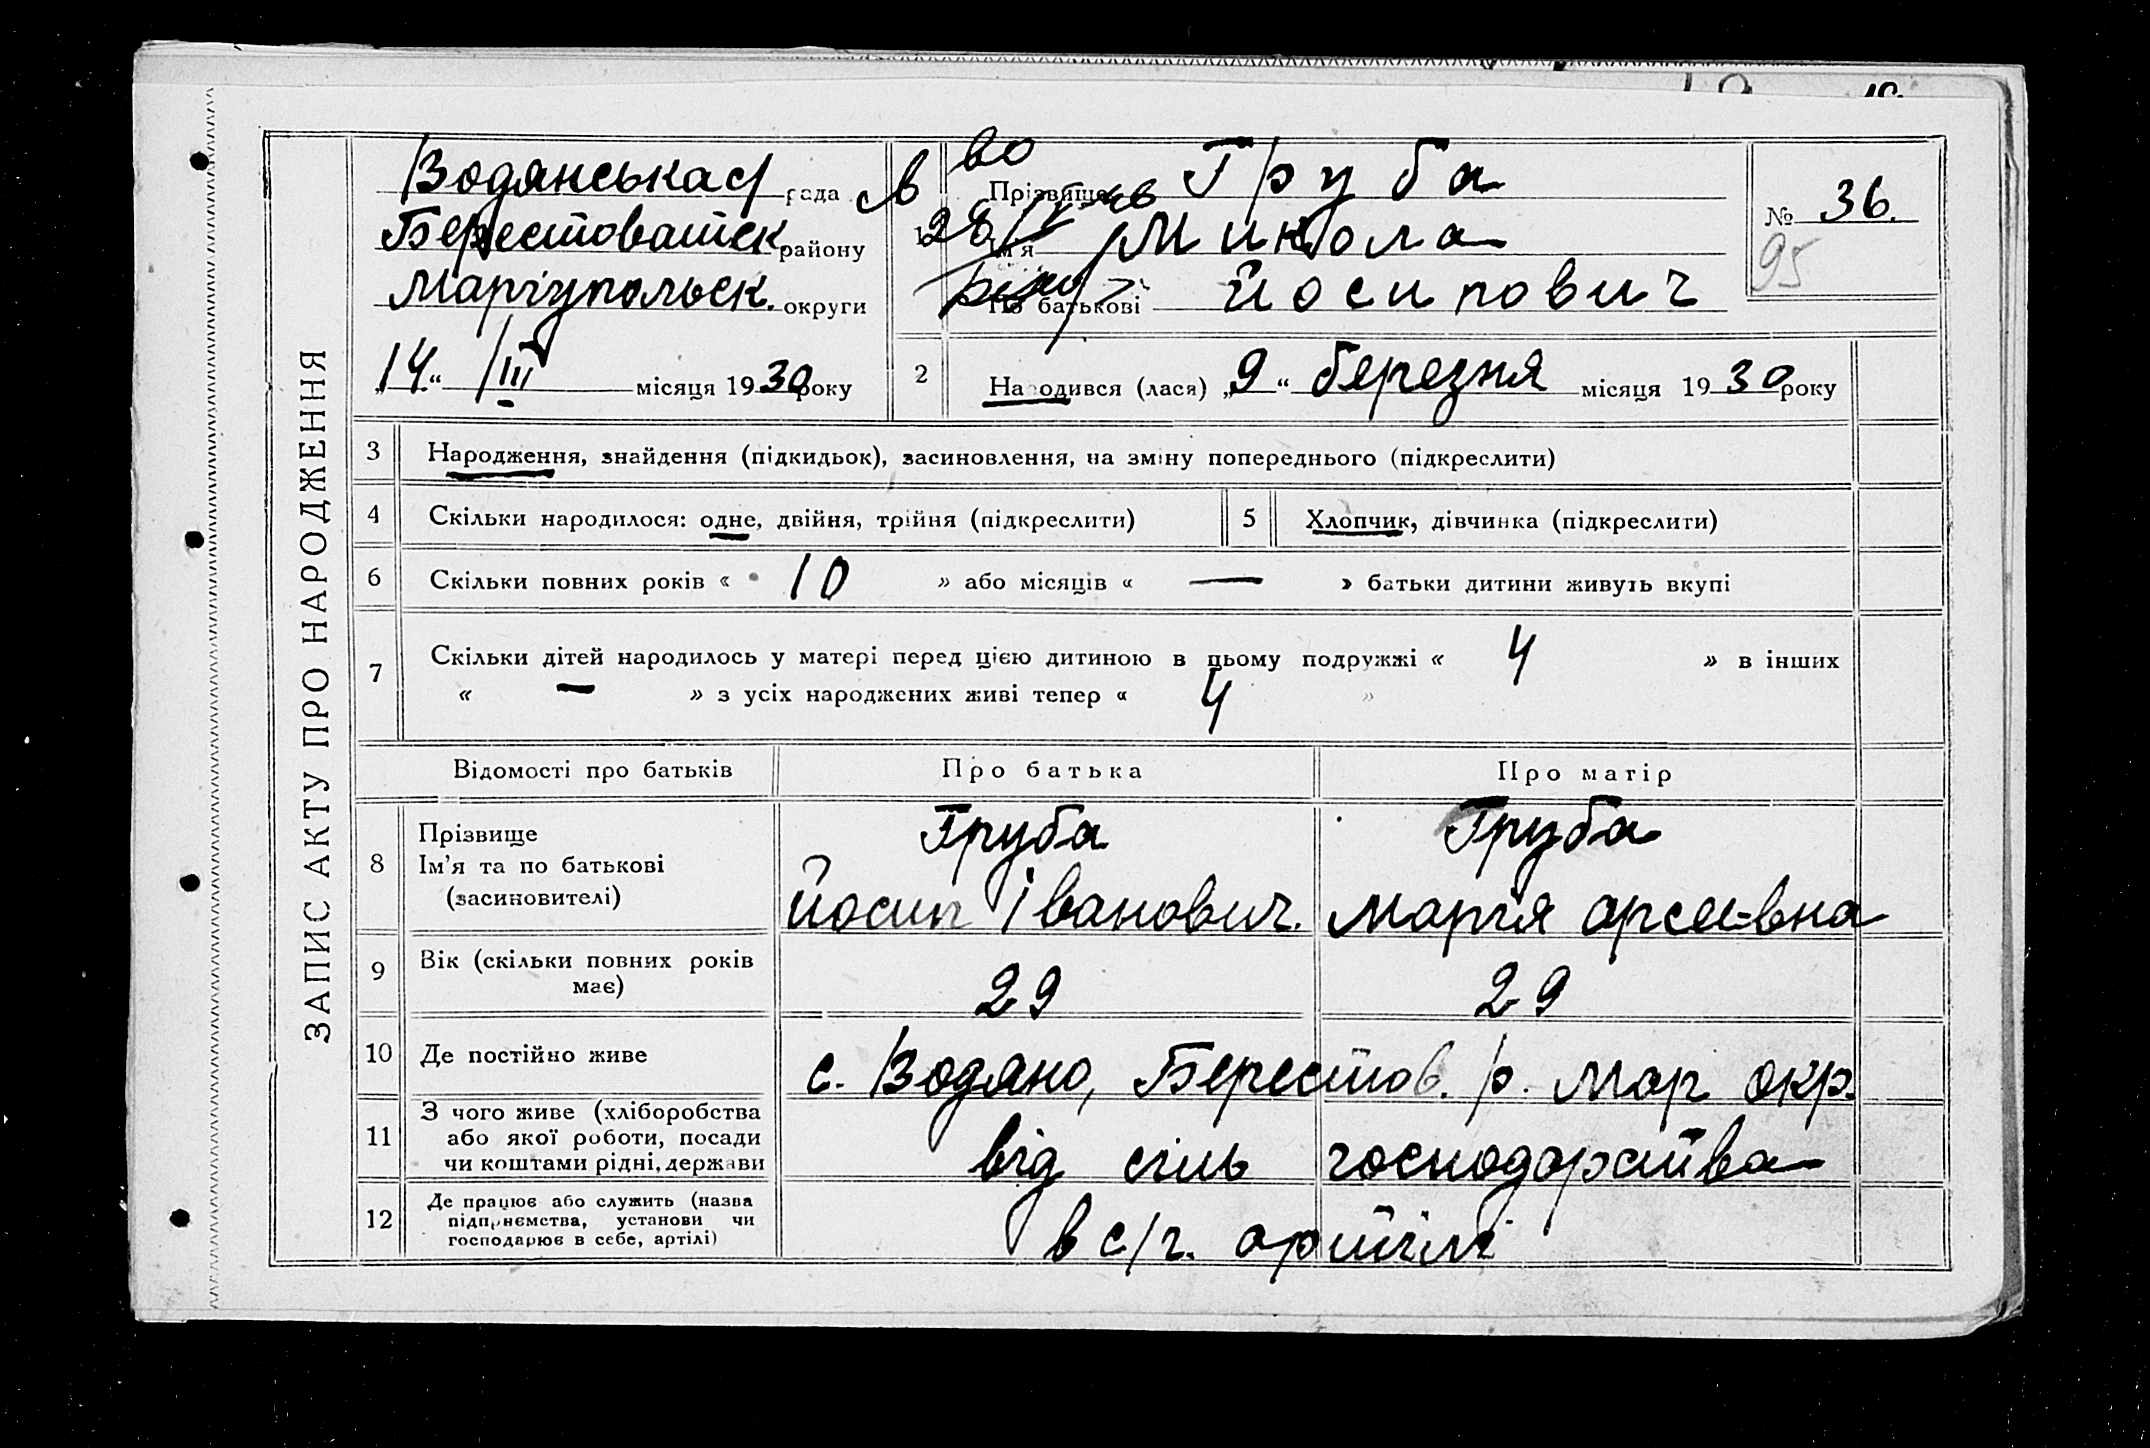 ЗАПИС АКТУ ПРО НАРОДЖЕННЯ
Водянська рада
Берестоватск. району
Маріупольск. округи
„14“ III місяця 1930 року
Прізвище Груба
Ім'я Микола
По батькові Йосипович
№ 36.
95
2 Народився (лася) „9“ березня місяця 1930 року
3 Народження, знайдення (підкидьок), засиновлення, на зміну попереднього (підкреслити)
4 Скільки народилося: одне, двійня, трійня (підкреслити) 5 Хлопчик, дівчинка (підкреслити)
6 Скільки повних років « 10 » або місяців « — » батьки дитини живуть вкупі
7 Скільки дітей народилось у матері перед цією дитиною в цьому подружжі « 4 » в інших
« — » з усіх народжених живі тепер « 4 »
Відомості про батьків Про батька Про матір
8 Прізвище
Ім'я та по батькові
(засиновителі)
Груба
Йосип Іванович.
Груба
Марія
9 Вік (скільки повних років
має)
29 29
10 Де постійно живе с. Водяно, Берестов. р. Мар. окр.
11 З чого живе (хліборобства
або якої роботи, посади
чи коштами рідні, держави
від сіль господарства
12 Де працює або служить (назва
підприємства, установи чи
господарює в себе, артілі)
в с/г. артілі